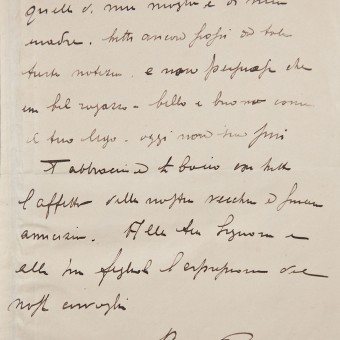 quelle di mia moglie e di mia
madre. tutti ancora scossi da tale
triste notizia. e non persuasi che
un bel ragazzo - bello e buono come
il tuo Lugo. oggi non sia più
T'abbraccio e ti bacio con tutto
l'affetto della nostra vecchia e
amicizia. Alla tua Signora e
alla tua figliola l'espressione dei
nostri cordogli